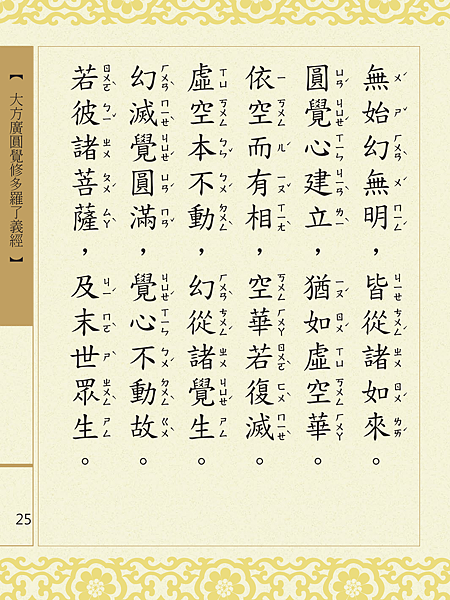 無始幻無明，皆從諸如來。
圓覺心建立，猶如虛空華。
依空而有相，空華若復滅。
虛空本不動，幻從諸覺生。
幻滅覺圓滿，覺心不動故。
若彼諸菩薩，及末世眾生。
【大方廣圓覺修多羅了義經】
25